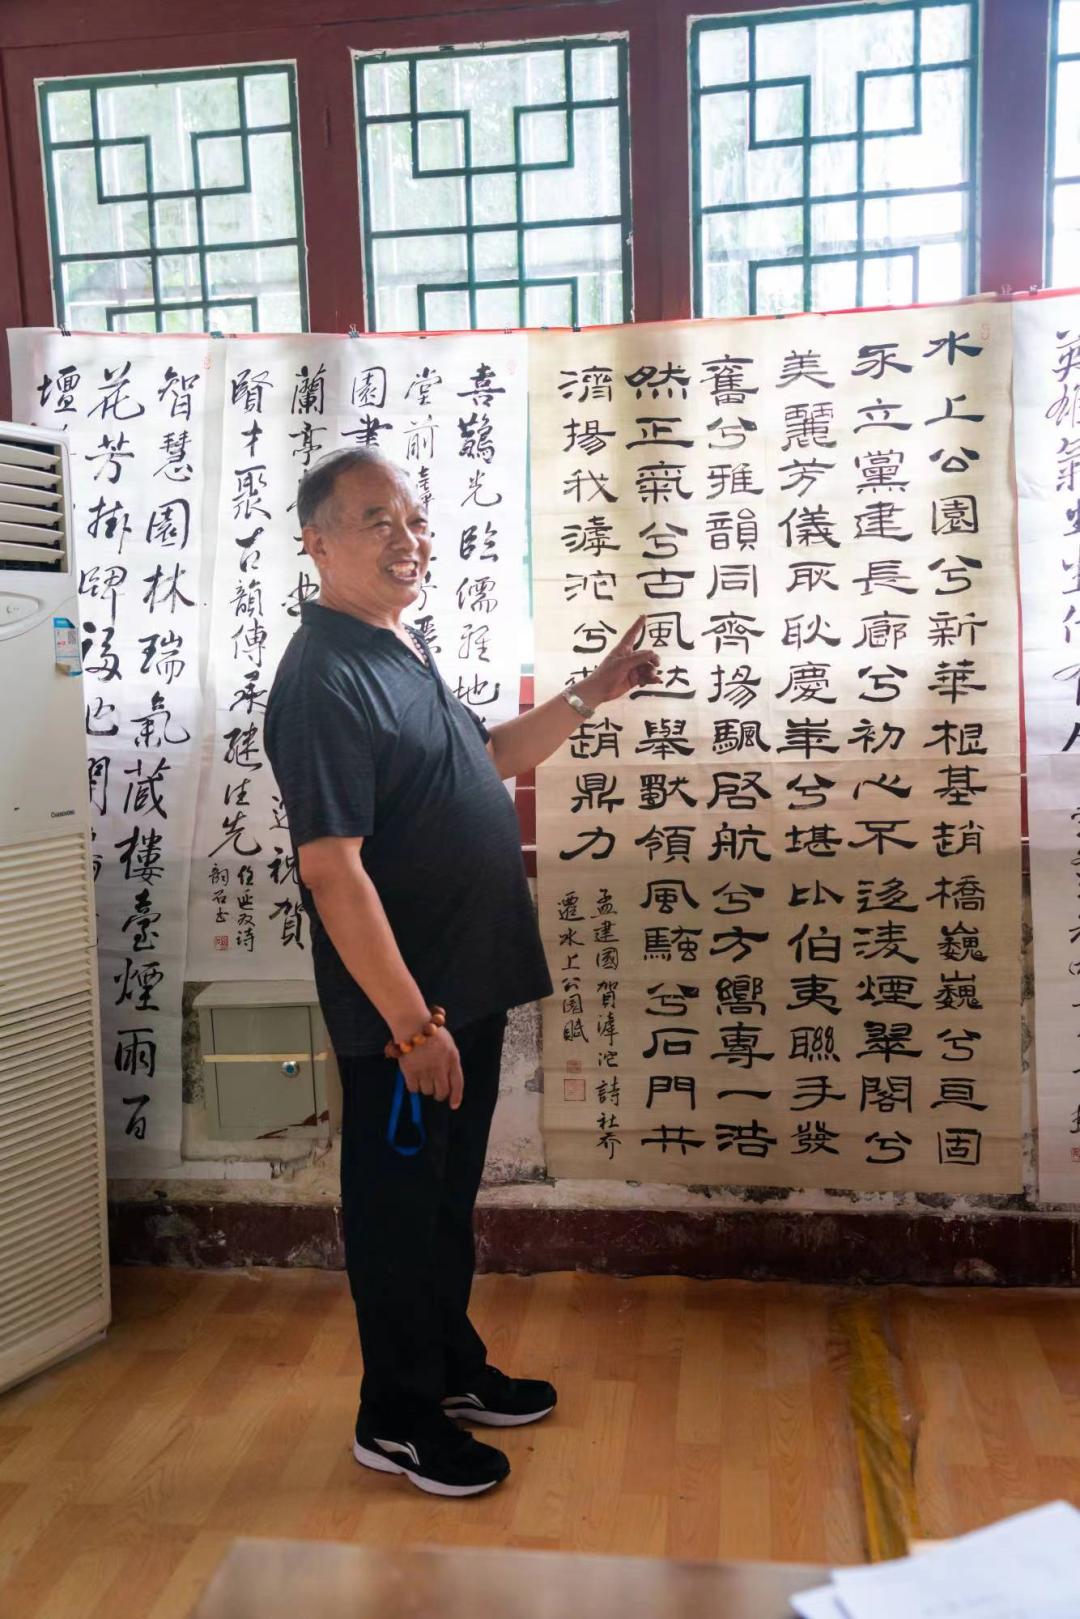 英雄氣
水上公園兮新華根基趙橋巍巍兮亙固
永立黨建長廊兮初心不迻淩煙翠閣兮
美麗芳儀耿耿慶峯兮堪比伯夷聯手發
奮兮雅韻同齊揚颿啓航兮方嚮專一浩
然正氣兮古風达舉獻領風騷兮石門共
濟揚我滹沱兮趙鼎力
孟建國賀滹沱詩社喬
遷水上公園賦
喜鵲光臨儒雅地
堂前
園書
蘭亭祝賀
賢才聚古韻傳承繼往先
智慧園林瑞氣蔵樓臺煙雨百
花芳掛牌
壇
CHANGHONG